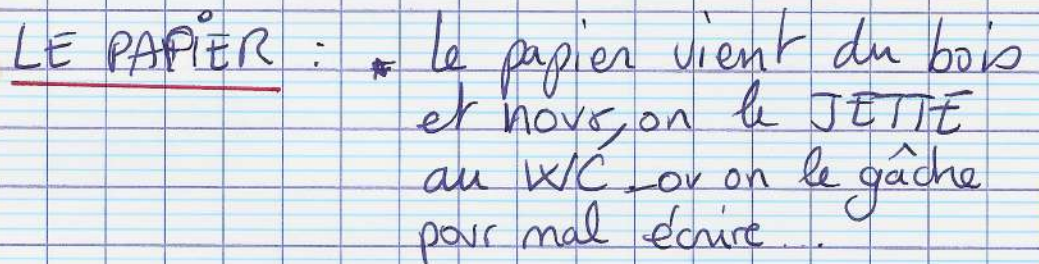 LE PAPIER : * Le papier vient du bois
et nous, on le JETTE
au WC _ ou on le gâche
pour mal écrire...